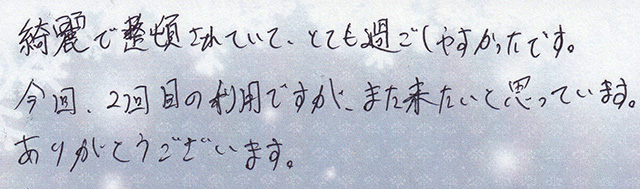 綺麗で整頓されていて、とても過ごしやすかったです。
今回、2回目の利用ですが、また来たいと思っています。
ありがとうございます。